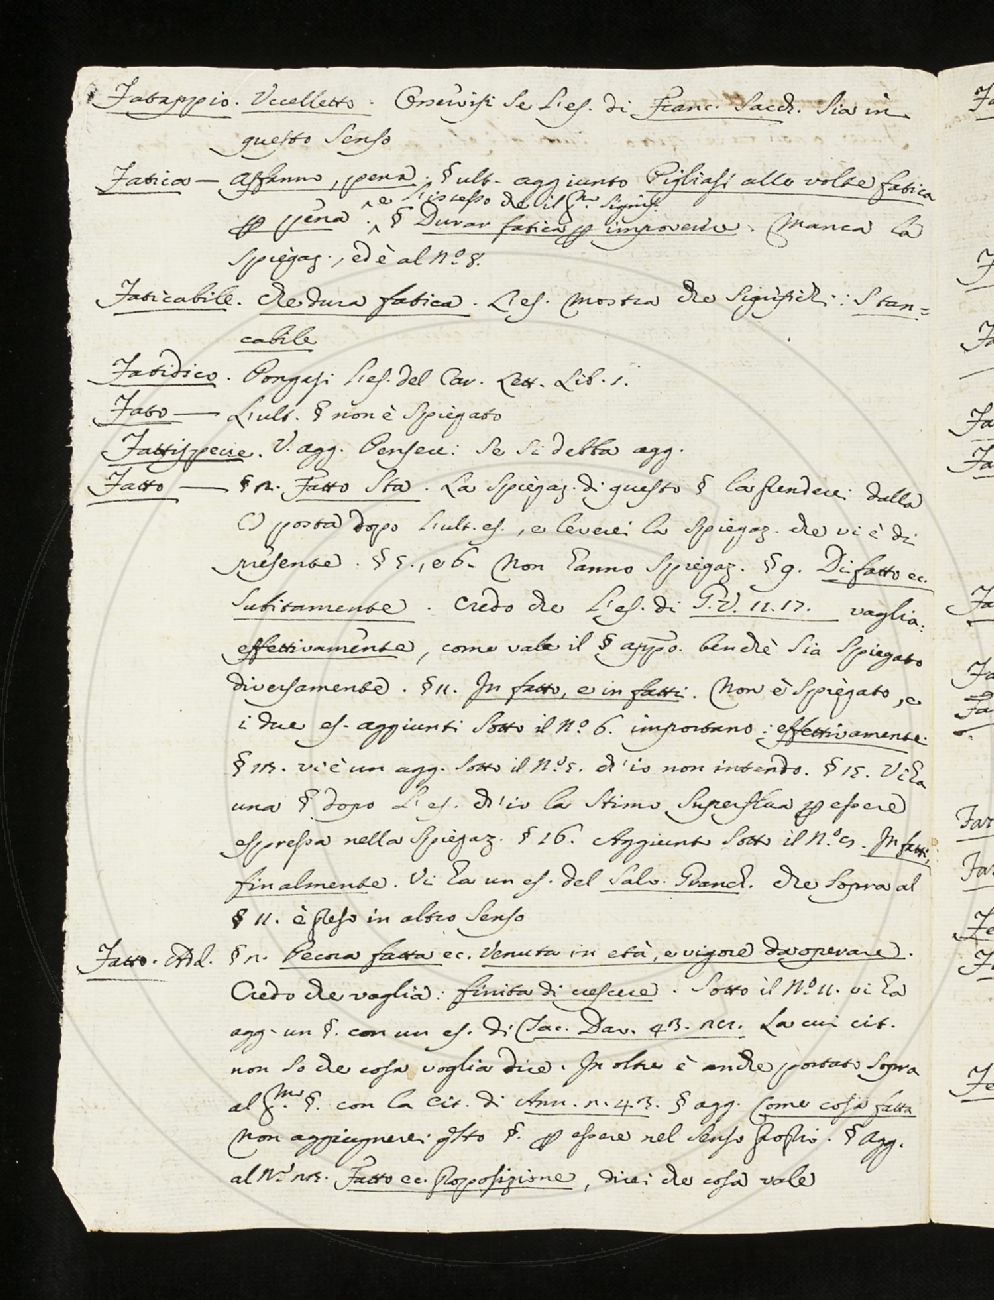 Fatappio. Uccelletto. Osservisi se l'es. di Franc. Sacch. sia in
questo senso
Fatica — affanno, pena. § ult. aggiunto Pigliasi alle volte fatica
e l'istesso
pena. § Durar fatica impoverire. Manca la
spiegaz., ed è al N.° 8.
Faticabile. che dura fatica. L'es. mostra che significhi: stan=
cabile
Fatidico. Pongasi l'es. del Car. Lett. Lib. 1.
Fato — L'ult. § non è spiegato
Fattispecie. V. agg. Pensere: se si debba agg.
Fatto — § 2. Fatto sta. La spiegaz. di questo § la prendere: dalla
() posta dopo l'ult. es., e leverei la spiegaz. che vi è di
presente. § 5., e 6. Non hanno spiegaz. § 9. Di fatto ec.
Subitamente. Credo che l'es. di G. V. 11. 17. vaglia:
effettivamente, come vale il § appo. benchè sia spiegato
diversamente. § 11. In fatto, e in fatti. Non è spiegato, e
i due es. aggiunti sotto il N.° 6. importano: effettivamente.
§ 13. vi è un agg. sotto il N.° 5. ch'io non intendo. § 15. Vi ha
una § dopo l'es. ch'io la stimo superflua essere
espressa nella spiegaz. § 16. Aggiunto sotto il N.° 9. In fatti,
finalmente. Vi ha un es. del Salv. Granch. che sopra al
§ 11. è preso in altro senso
Fatto. Add. § 2. Pecora fatta ec. Venuta in età, e vigore da operare.
Credo che vaglia: finita di crescere. Sotto il N.° 11. vi ha
agg. un §. con un es. di Tac. Dav. 43. La cui cit.
non so che cosa voglia dire. In oltre è anche portato sopra
al §. con la cit. di Ann. 2. 43. § agg. Come cosa fatta
Non aggiugnerei §. essere nel senso proprio. § Agg.
al N.° Fatto ec. Proposizione, direi che cosa vale